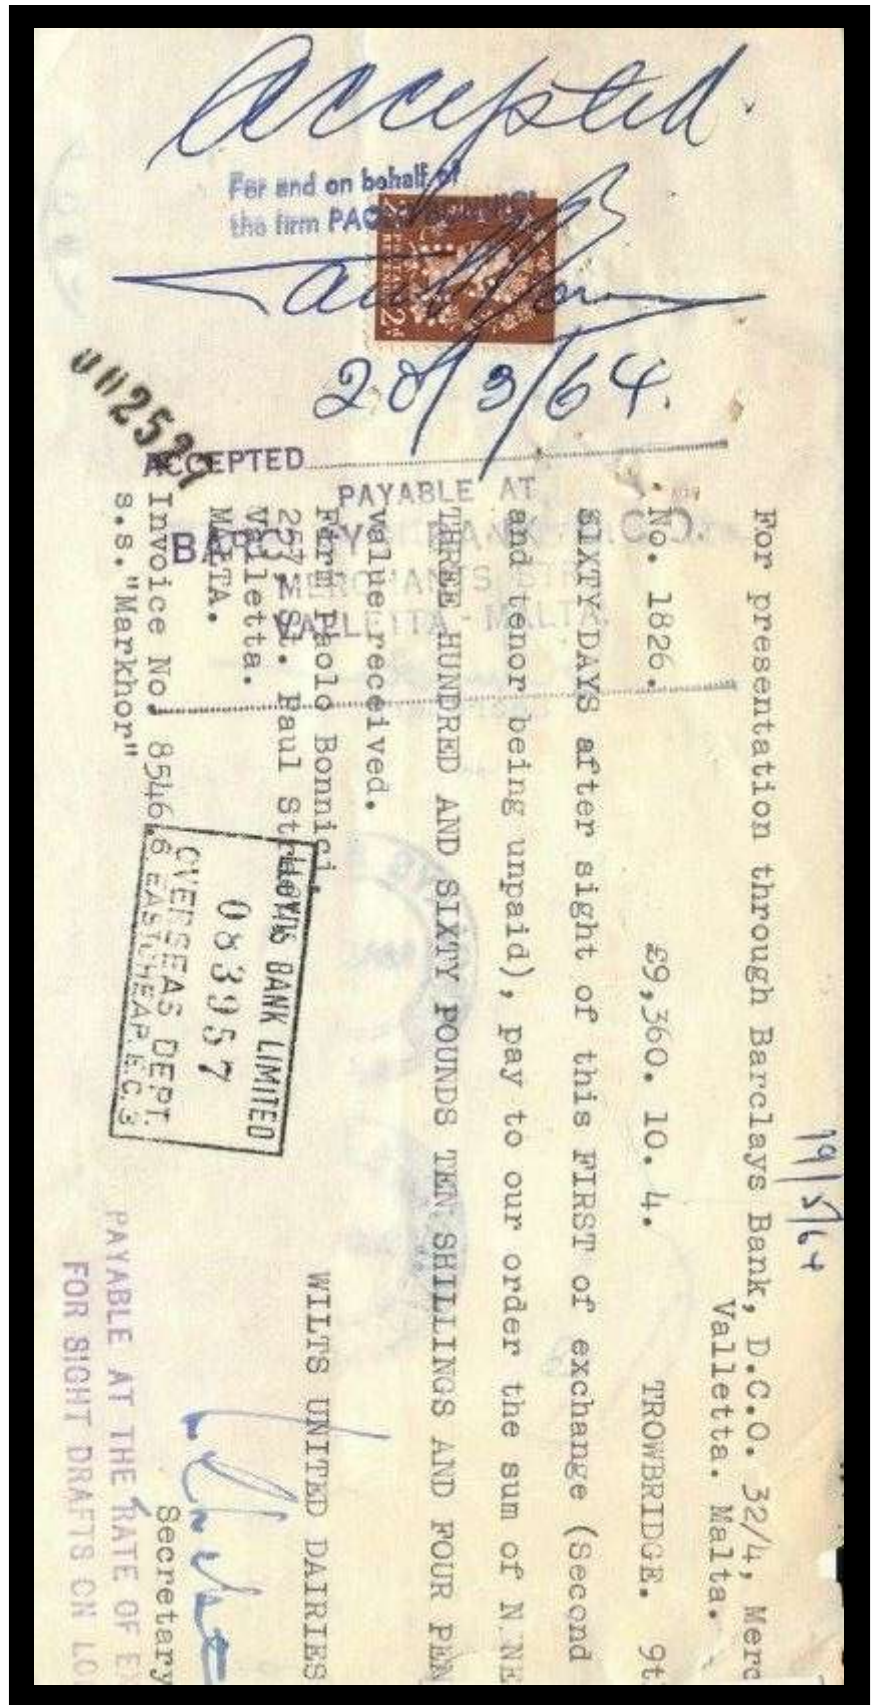 Accepted.
For and on behalf of
the firm
20/3/64.
ACCEPTED
PAYABLE AT
MERCHANTS STR
VALLETTA - MALTA.
19/5/64
For presentation through Barclays Bank, D.C.O. 32/4, Merc
Valletta. Malta.
No. 1826. £9,360. 10. 4. TROWBRIDGE. 9t
SIXTY DAYS after sight of this FIRST of exchange (Second
and tenor being unpaid), pay to our order the sum of NINE
THREE HUNDRED AND SIXTY POUNDS TEN SHILLINGS AND FOUR PEN
value received.
Firm Paolo Bonnici,
257, St. Paul Street,
Valletta.
MALTA.
Invoice No. 8546.
s.s. "Markhor"
WILTS UNITED DAIRIES
Secretary
LLOYDS BANK LIMITED
083957
OVERSEAS DEPT.
6 EASTCHEAP E.C.3
PAYABLE AT THE RATE OF EX
FOR SIGHT DRAFTS ON LO
2d